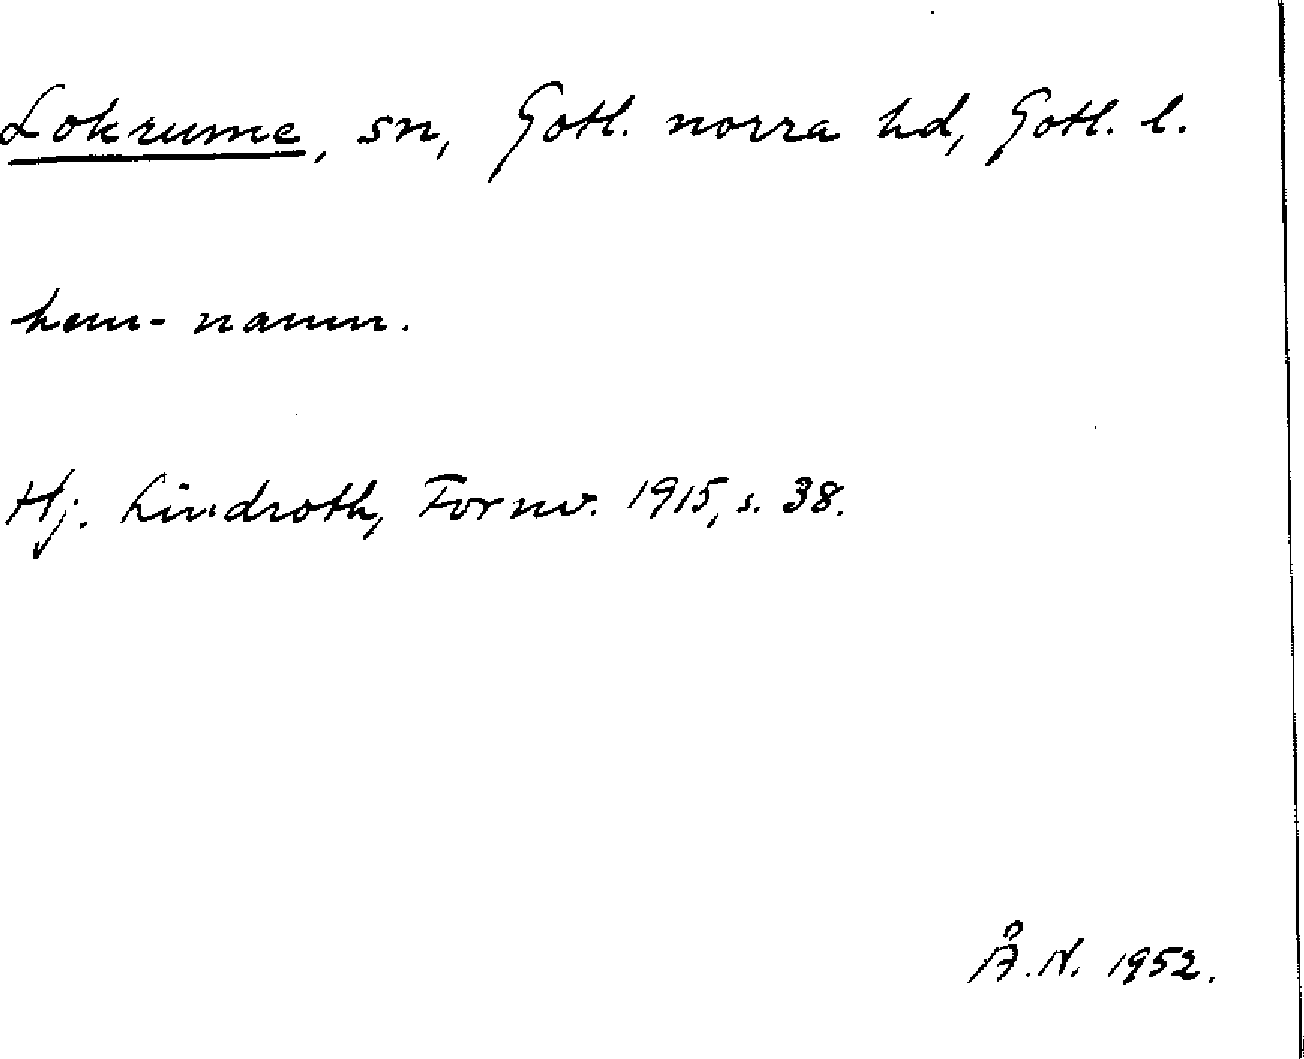 Lokrume, sn, Gotl. norra hd, Gotl. l.
hem- namn.
Hj. Lindroth, Fornv. 1915, s. 38.
Å.N. 1952.